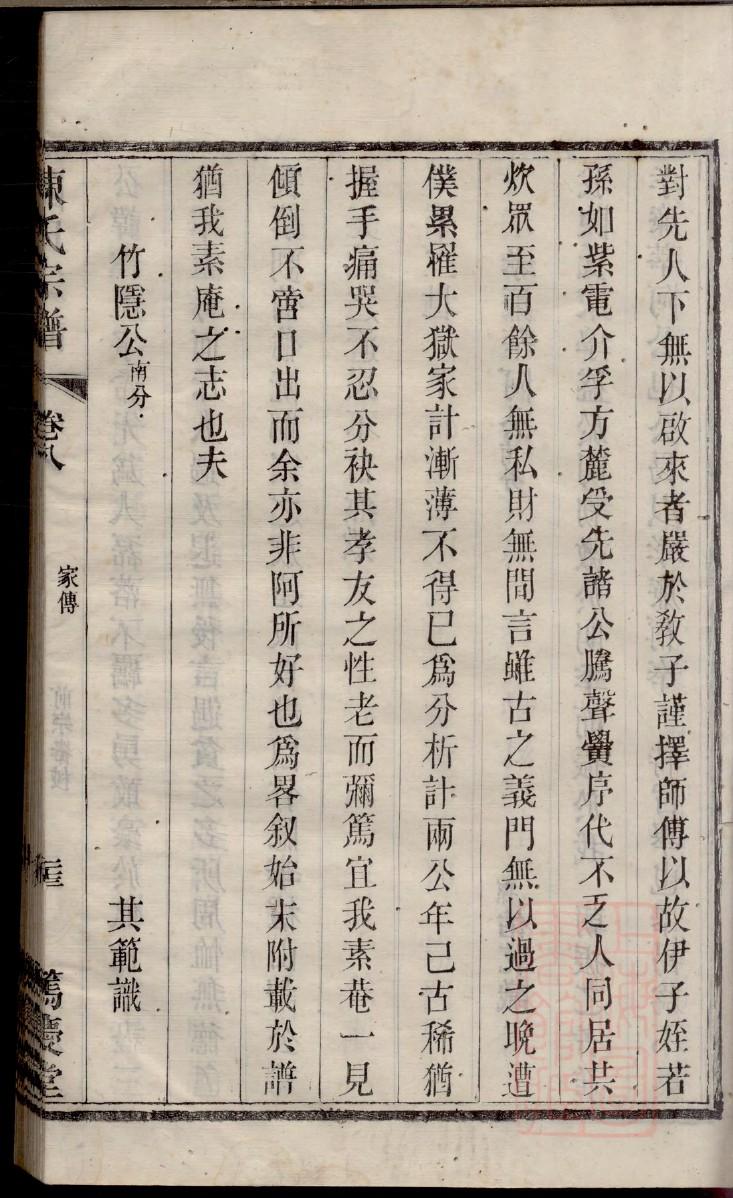 對先人下無以啟來者嚴於教子謹擇師傅以故伊子姪若
孫如紫電介孚方麓受先諸公騰聲黌序代不乏人同居共
炊眾至百餘人無私財無間言雖古之義門無以過之晚遭
僕累罹大獄家計漸薄不得已為分析計兩公年已古稀猶
握手痛哭不忍分袂其孝友之性老而彌篤宜我素菴一見
傾倒不啻口出而余亦非阿所好也為畧叙始末附載於譜
猶我素庵之志也夫
竹隱公南分 其範識
陳氏宗譜 卷八 家傳 篤慶堂